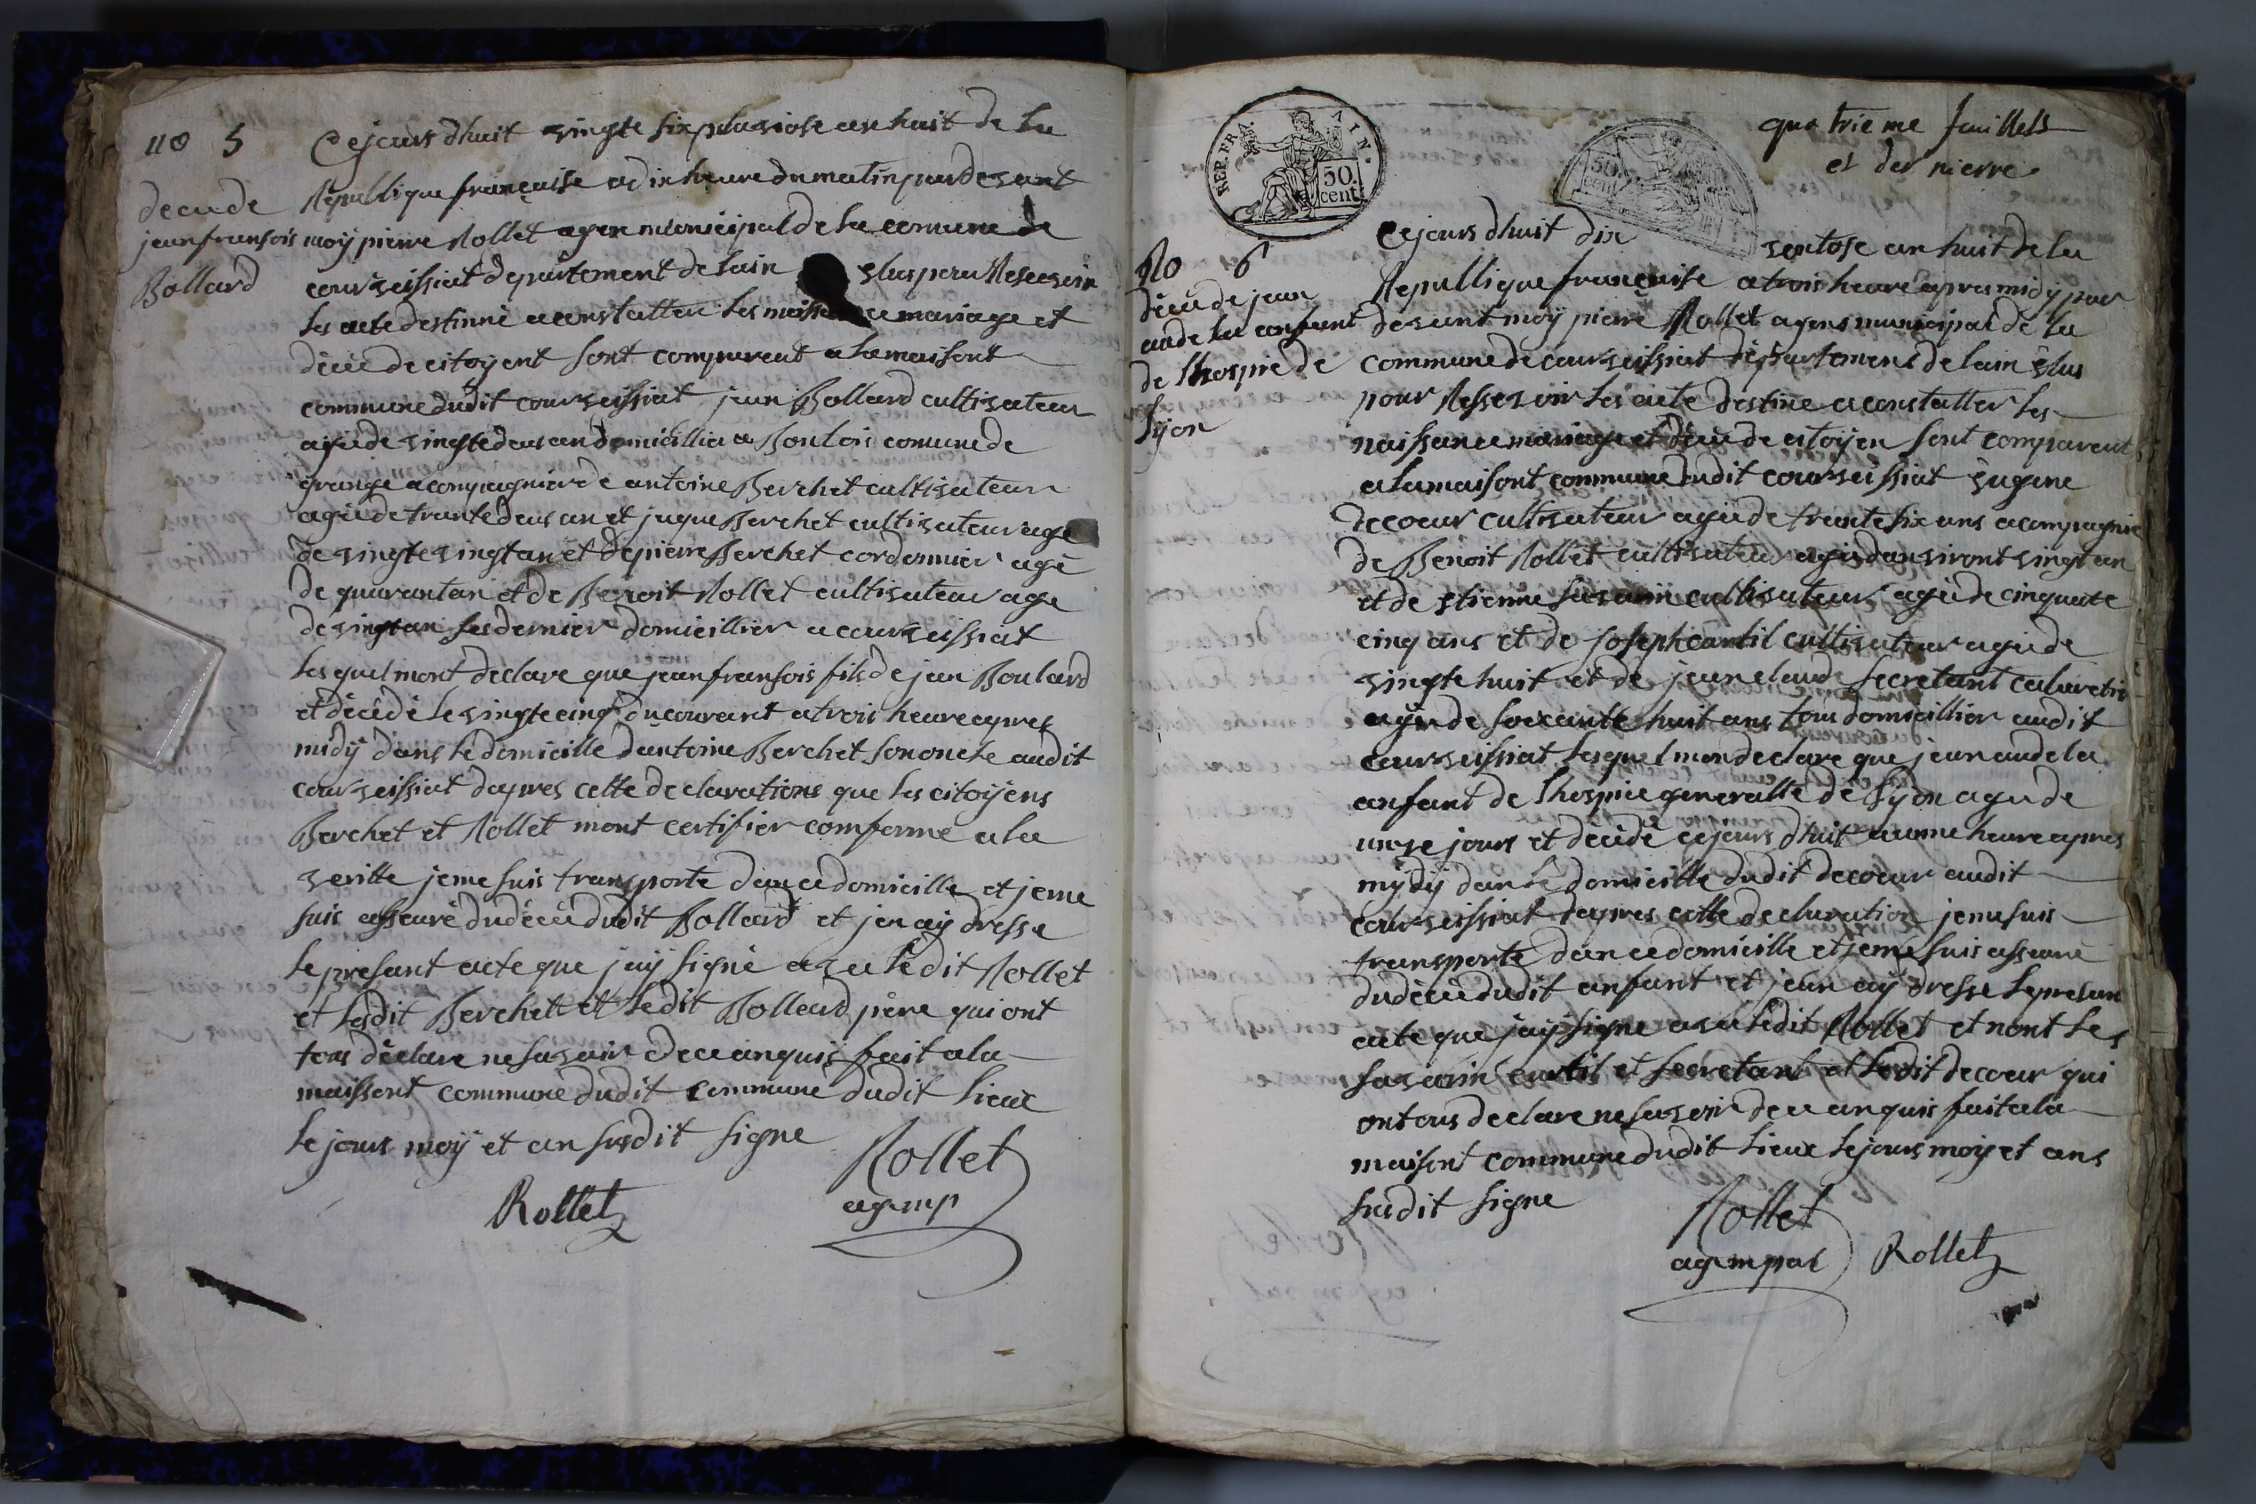 no 5
decu de
jean fransois
Bollard
Cejours dhuit vingte six pluviose an huit de la
Republlique française a dix heure du matin par devant
moÿ pierre Rollet agen municipal de la comune de
courveissiat departement de lain elus peru Resevoir
les acte destinné a constatter les naissance mariage et
décü de citoÿent sont comparent a la maisont
commune dudit courveissiat jean Bollard cultivateur
agé de vingte deus an domicillié a Boulois comune de
grange acompagnier de antoine Berchet cultivateur
agé de trante deus an et jaque Berchet cultivateur age
de vingte vingt an et de pierre Berchet cordonnier agé
de quarantan et de Benoit Rollet cultivateur age
de vingt an ses dernier domicillier a courveissiat
les quel mont declare que jean fransois fils de jean Boulard
et décédé le vingte cinq du courant a trois heure apres
midÿ dans le domicille dantoine Berchet son oncle audit
courveissiat dapres cette declarations que les citoÿens
Berchet et Rollet mont certifier comforme a la
veritte je me suis transporte dan ce domicille et je me
suis asseuré du décü dudit Bollard et jen aÿ dresse
le presant acte que jaÿ signé avec le dit Rollet
et lesdit Berchet et ledit Bollard père qui ont
tous déclare ne savoir de ce anquis fait a la
maissont commune dudit commune dudit lieux
le jours moÿ et an susdit signe
Rollet
ag mp
Rollet
REP. FRA. AIN.
50. cent
50. cent
quatrieme feuillets
et der nierre
No 6
décü de jean
aude la enfant
de lhospie de
Lÿon
Cejours dhuit dix ventose an huit de la
Republlique française a trois heure apres midÿ par
devant moÿ pierre Rollet agens municipal de la
commune de courveissiat département de lain elus
pour Ressevoir les acte destiné a constatter les
naissance mariage et décü de citoÿen sont comparent
a la maisont commune dudit courveissiat eugene
decoeur cultivateur agé de trante six ans acompagnié
de Benoit Rollet cultivateur agés danviront vingt an
et de etienne savarin cultivateur agé de cinquate
cinq ans et de joseph curtil cultivateur agé de
vingte huit et de jean claude secretant cabaretié
agé de soexante huit ans tous domicillier audit
courveissiat les quel mon declare que jean aude la
anfant de lhospice generalle de lÿon agé de
unse jours et décédé cejours dhuit a une heure apres
mÿdÿ dan le domicille dudit decoeur audit
courveissiat dapres cette declaration je me suis
transporté dan ce domicille et je me suis asseuré
du décü dudit anfant et jean aÿ dresse le presan
acte que jaÿ signe avec ledit Rollet et nont les
savarin curtil et secretant et ledit decoeur qui
on tous declare ne savoir de ce anquis fait a la
maisont commune dudit lieux le jours moÿ et ans
susdit signe
Rollet
ag mpal
Rollet